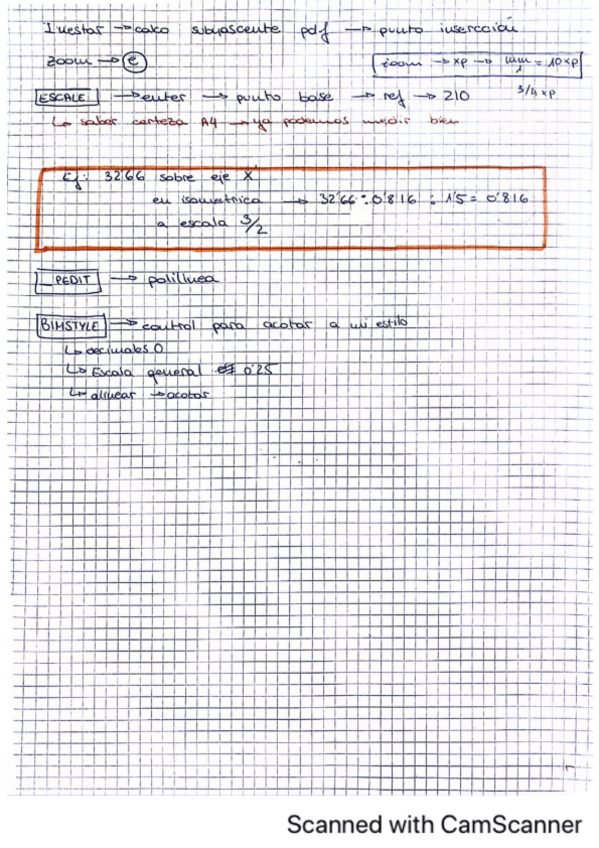 Inestar → calco subyascente pdf → punto inserción
zoom → e
zoom → xp → = 10xp
3/4 xp
ESCALE → enter → punto base → ref → 210
↳ saber certeza A4 → ya podemos medir bien
Ej: 32'66 sobre eje X
en isométrica → 32'66 : 0'816 : 1'5 = 0'816
a escala 3/2
_PEDIT → polilínea
BIMSTYLE → control para acotar a mi estilo
↳ decimales 0
↳ Escala general 0'25
↳ alinear → acotar
Scanned with CamScanner